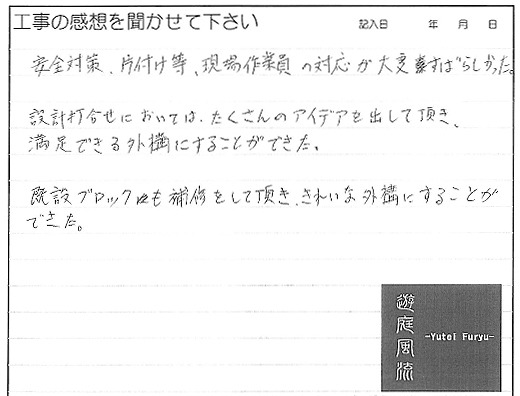 工事の感想を聞かせて下さい
記入日 年 月 日
安全対策、片付け等、現場作業員の対応が大変すばらしかった。
設計打合せにおいては、たくさんのアイデアを出して頂き、
満足できる外構にすることができた。
既設ブロックにも補修をして頂き、きれいな外構にすることが
できた。
遊庭風流
-Yutei Furyu-